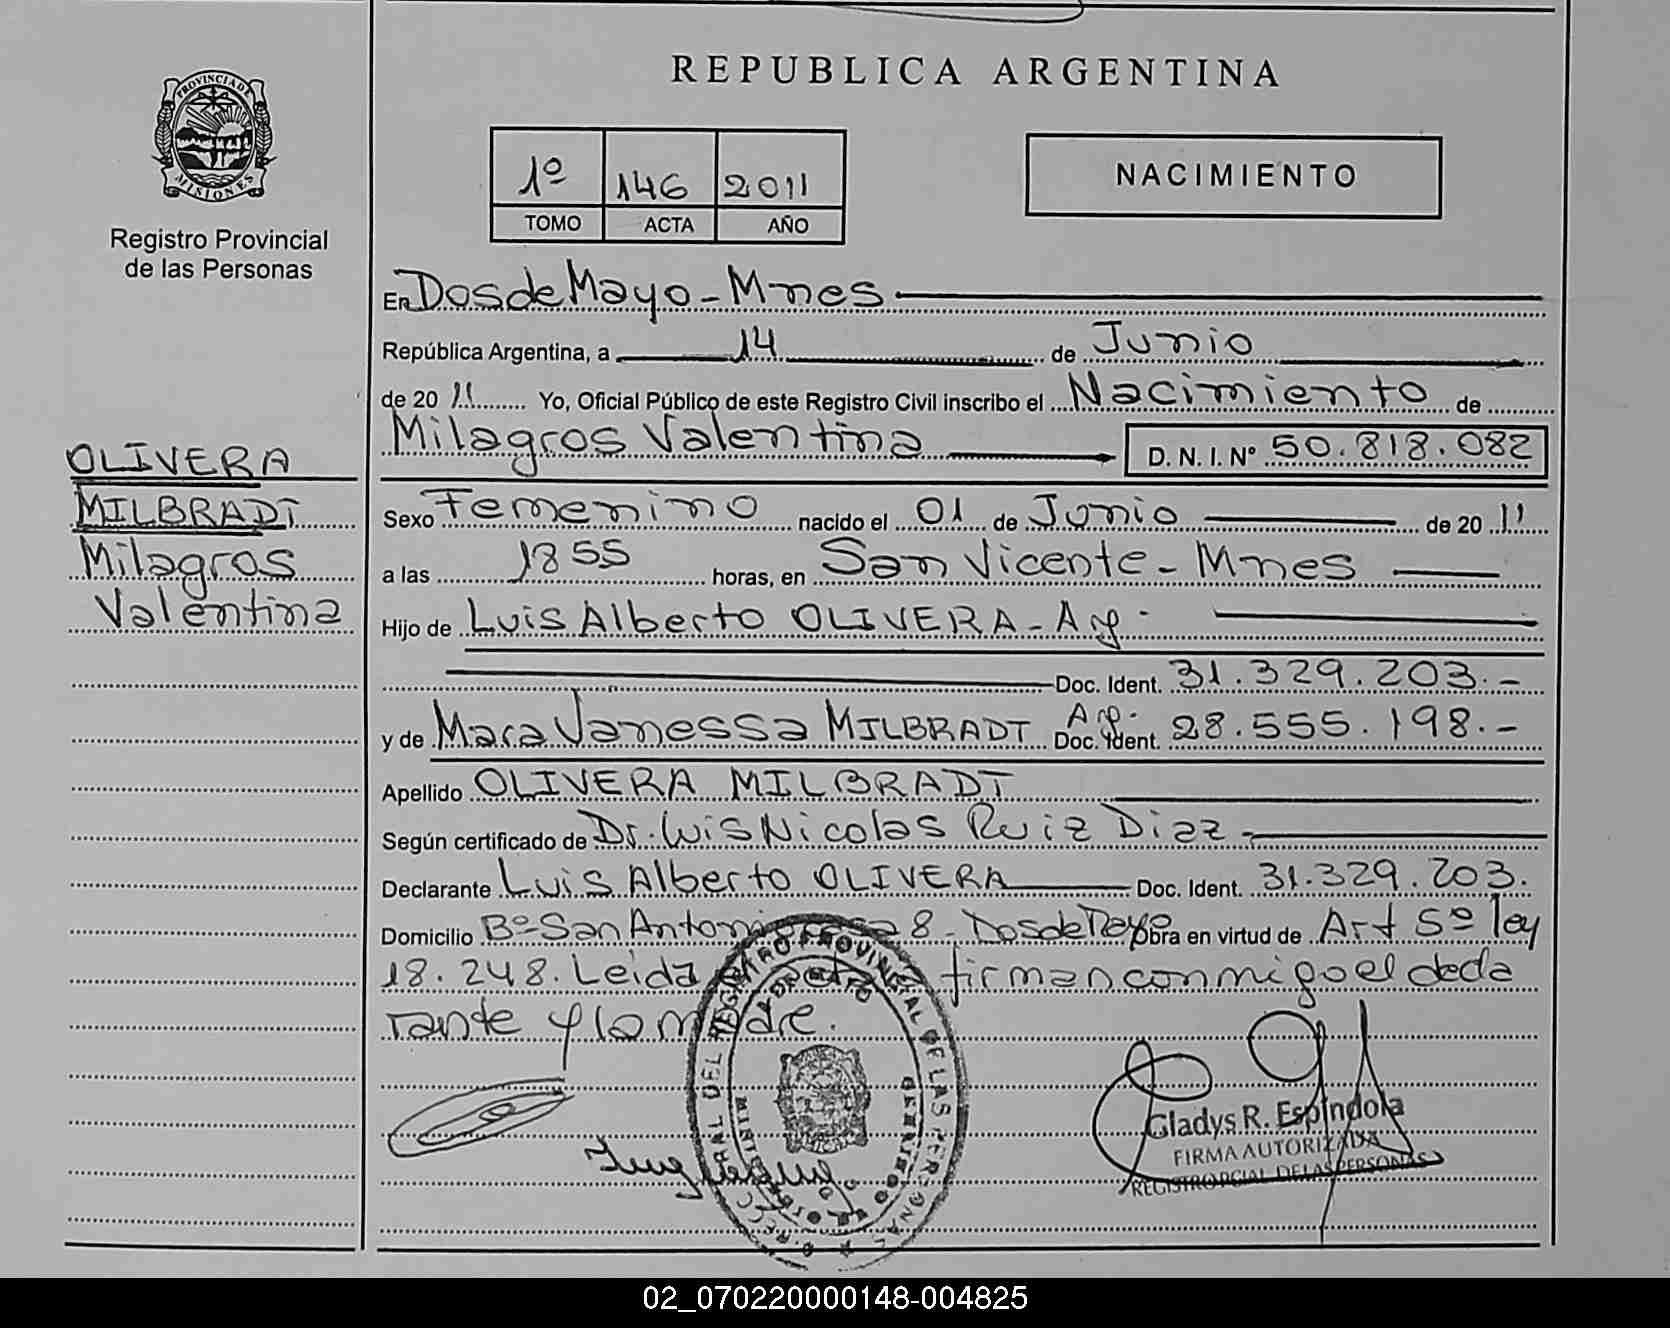 REPUBLICA ARGENTINA
PROVINCIA DE
MISIONES
Registro Provincial
de las Personas
1º 146 2011
TOMO ACTA AÑO
NACIMIENTO
En Dos de Mayo - Mnes
República Argentina, a 14 de Junio
de 20 11 Yo, Oficial Público de este Registro Civil inscribo el Nacimiento de
Milagros Valentina D. N. I. Nº 50.818.082
OLIVERA
MILBRADT
Milagros
Valentina
Sexo Femenino nacido el 01 de Junio de 20 11
a las 1855 horas, en San Vicente - Mnes
Hijo de Luis Alberto OLIVERA - Arg -
Doc. Ident. 31.329.203.-
y de Mara Vanessa MILBRADT Arg.- Doc. Ident. 28.555.198.-
Apellido OLIVERA MILBRADT
Según certificado de Dr. Luis Nicolas Ruiz Diaz -
Declarante Luis Alberto OLIVERA Doc. Ident. 31.329.203.
Domicilio Bº San Antonio 8 - Dos de Mayo Obra en virtud de Art 5º ley
18.248. Leida firman conmigo el decla
rante y la madre.
REGISTRO PROVINCIAL DE LAS PERSONAS
Gladys R. Espíndola
FIRMA AUTORIZADA
REGISTRO PCIAL. DE LAS PERSONAS
02_070220000148-004825